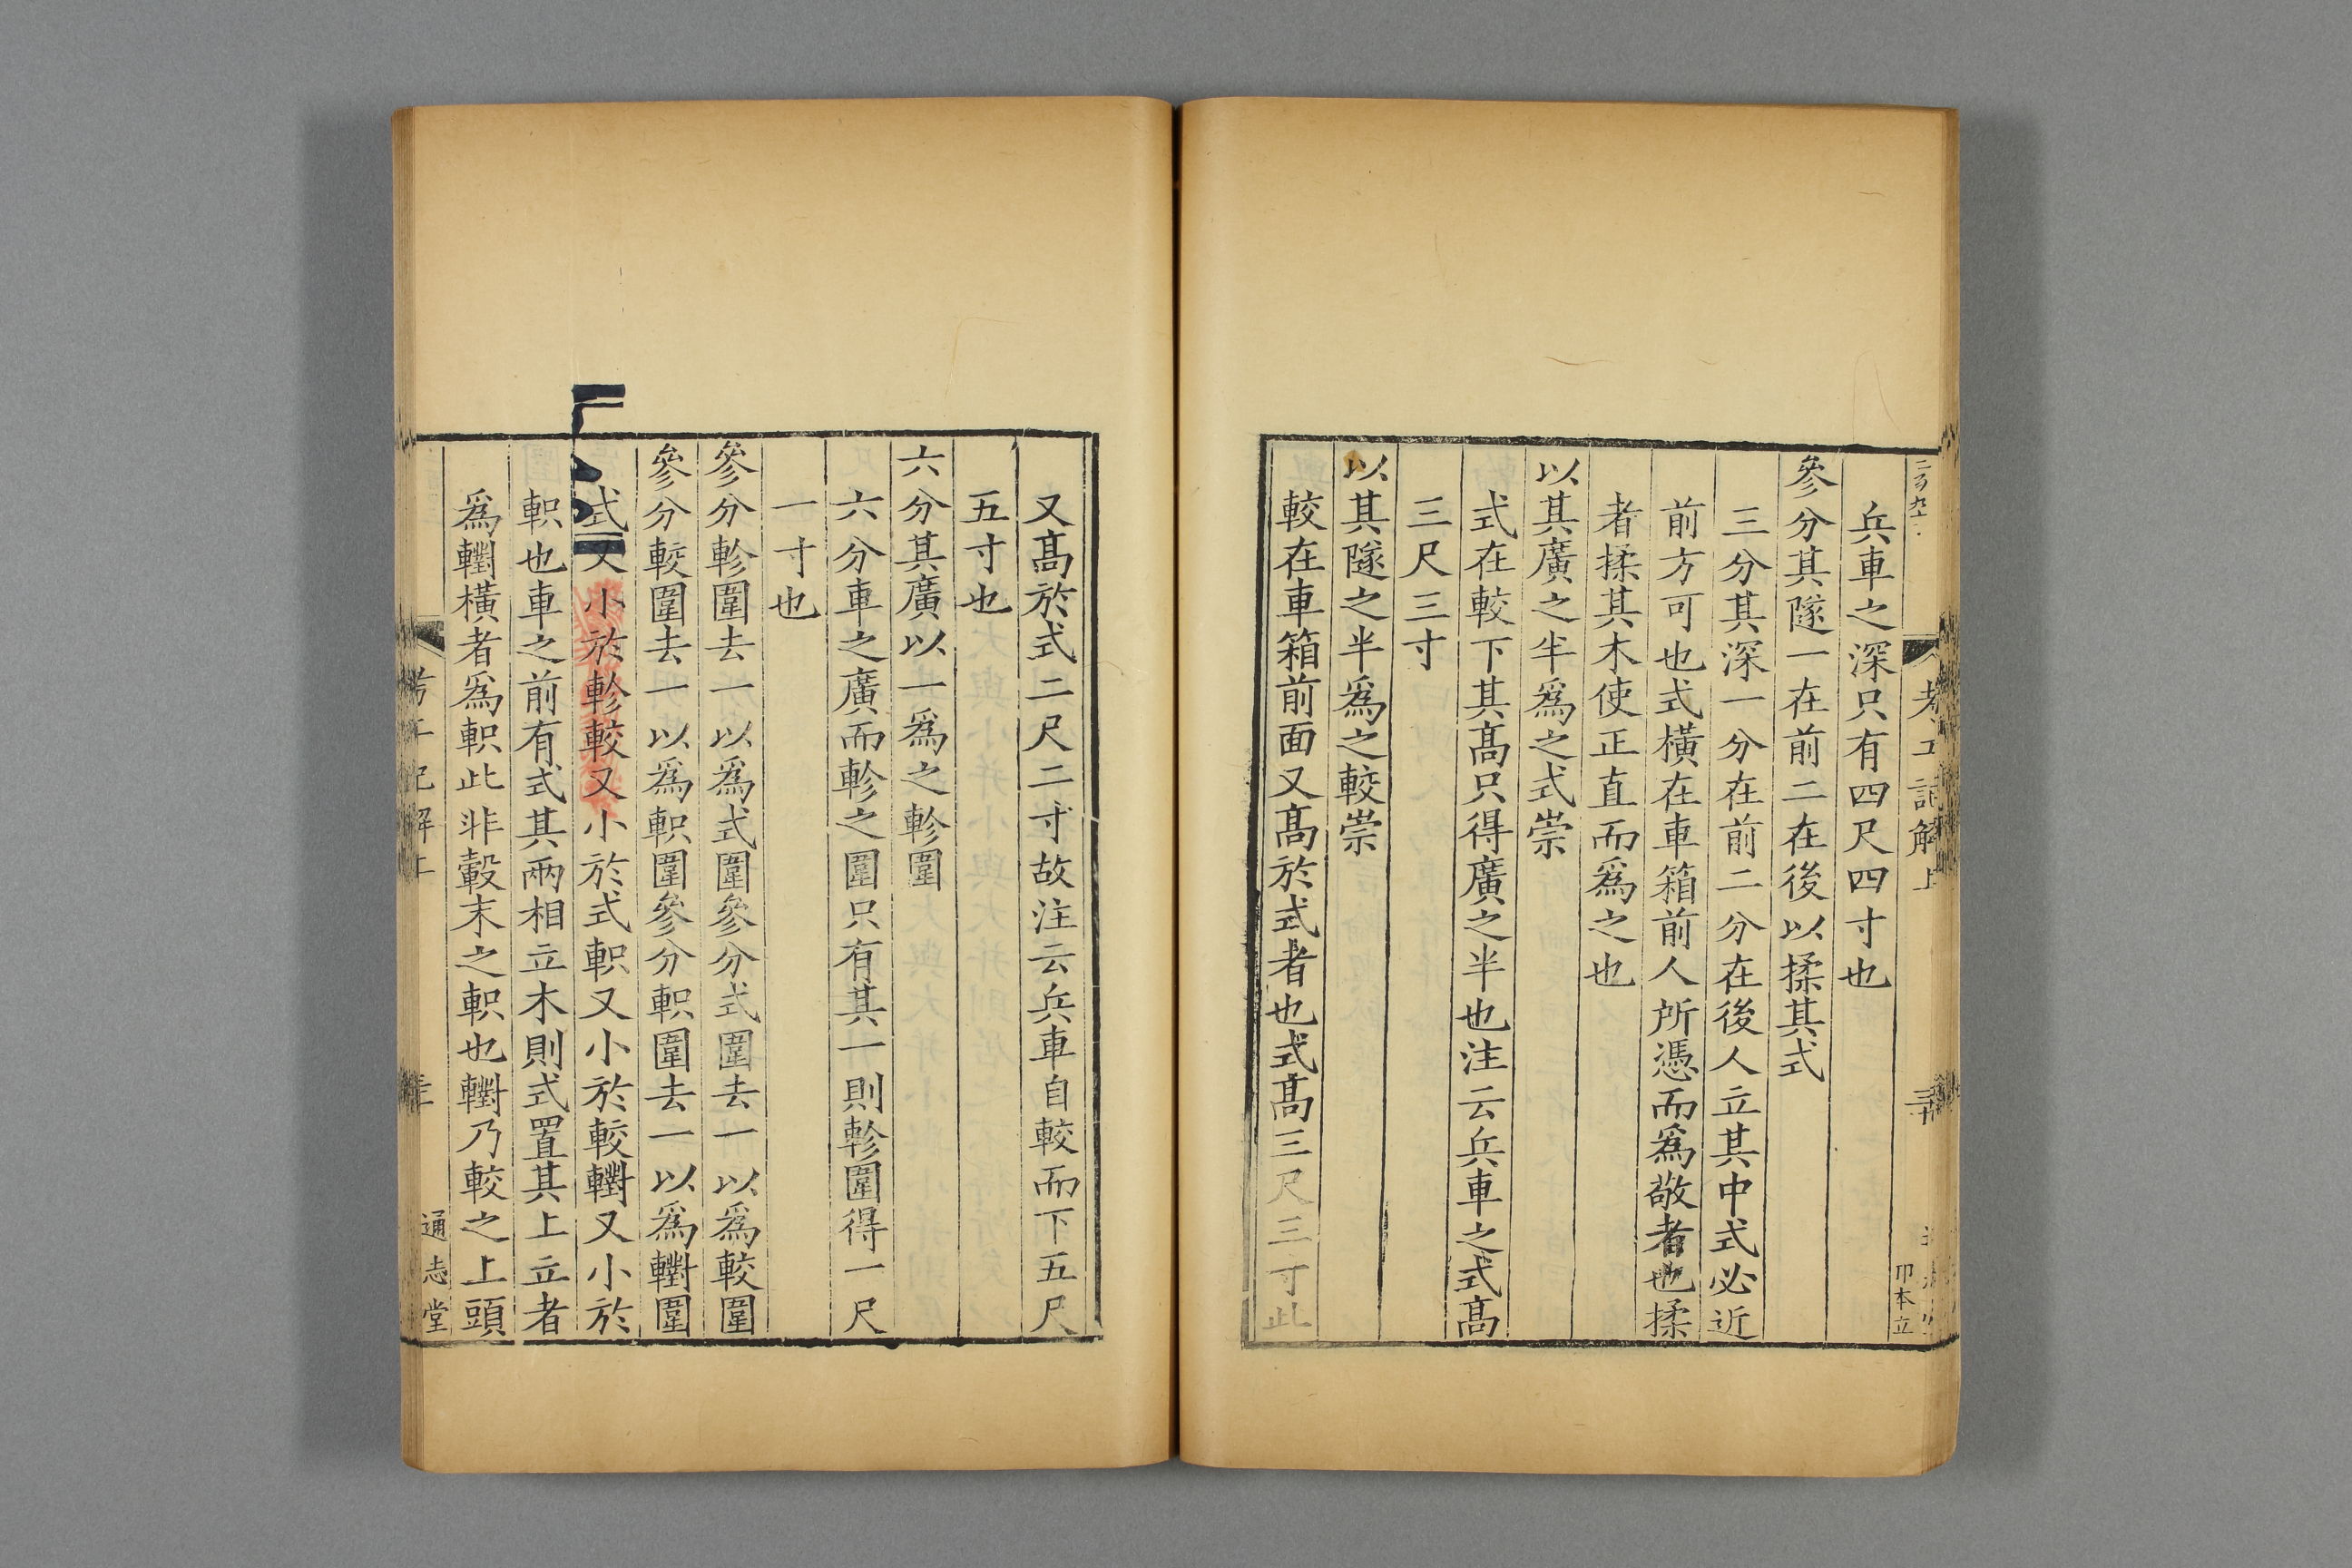 兵車之深只有四尺四寸也
參分其隧一在前二在後以揉其式
三分其深一分在前二分在後人立其中式必近
前方可也式橫在車箱前人所憑而爲敬者也揉
者揉其木使正直而爲之也
以其廣之半爲之式崇
式在較下其高只得廣之半也注云兵車之式高
三尺三寸
以其隧之半爲之較崇
較在車箱前面又高於式者也式高三尺三寸此
又高於式二尺二寸故注云兵車自較而下五尺
五寸也
六分其廣以一爲之軫圍
六分車之廣而軫之圍只有其一則軫圍得一尺
一寸也
參分軫圍去一以爲式圍參分式圍去一以爲較圍
參分較圍去一以爲軹圍參分軹圍去一以爲轛圍
式又小於軫較又小於式軹又小於較轛又小於
軹也車之前有式其兩相立木則式置其上立者
爲轛橫者爲軹此非轂末之軹也轛乃較之上頭
考工記解上
卬本立
通志堂